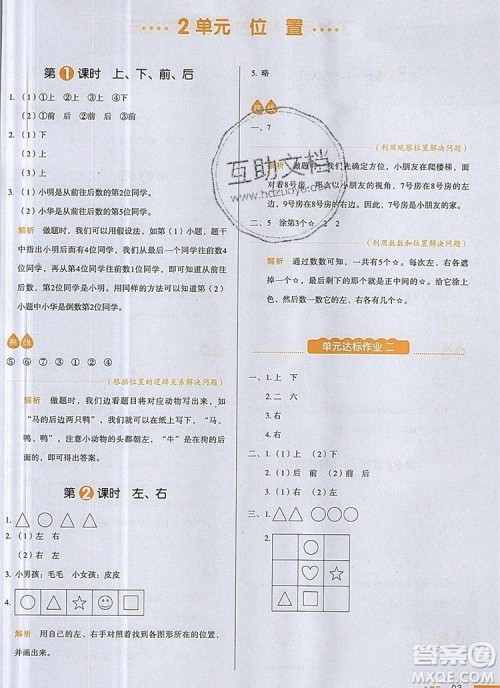 2单元 位 置
第1课时 上、下、前、后
1. (1)①上 ②上 ③上 ④下
(2)①下
2. (1)上
(2)上
3. (1)小明是从前往后数的第2位同学。
(2)小华是从前往后数的第5位同学。
解析 做题时，我们可以用假设法，如(1)小题，题干中指出小明后面有4位同学，则第二个同学往前数4位同学，后面2位同学往前数都不是4位同学，往后数也都不是4位同学。用同样的方法可以得出(2)小题中小华是倒数第2位同学。
挑战
⑤ ⑥ ⑦ ③ ① ② ④
(根据位置的逻辑关系解决问题)
解析 做题时，我们要将应对动物写出来，如“马的后边两只鸭”，我们可以在纸上写下“马、鸭、鸭”，注意这些小动物的头都朝左，“牛”是在狗的后面，即可得出答案。
第2课时 左、右
1.
2. (1)①左 右
(2)右
3. 小男孩：毛毛 小女孩：皮皮
4.
解析 用自己的左、右手对照着找到各图形所在的位置，并画出来。
5. 略
挑战
一、7
(利用观察位置解决问题)
解析 我们可以先确定方位，小朋友在爬楼梯，面对着8号房，所以以小朋友的视角，7号房是在8号房的左边，9号房在8号房的右边，7号房是小朋友的家。
二、5 涂第3个☆
(利用数数和位置解决问题)
解析 通过数数可知，一共有5个☆，最中间的☆，就是左边和右边剩下的都是正中间的☆，也就是第3个☆。
单元达标作业 二
一、1. 上 下
2. 二 六
3. 右
4. (1)左 (2)右
二、(1)后 前 (2)前 后 (3)前 后
三、1.
2.
互助文档
www.hdzuoye.com
答案圈
MXQE.COM
03